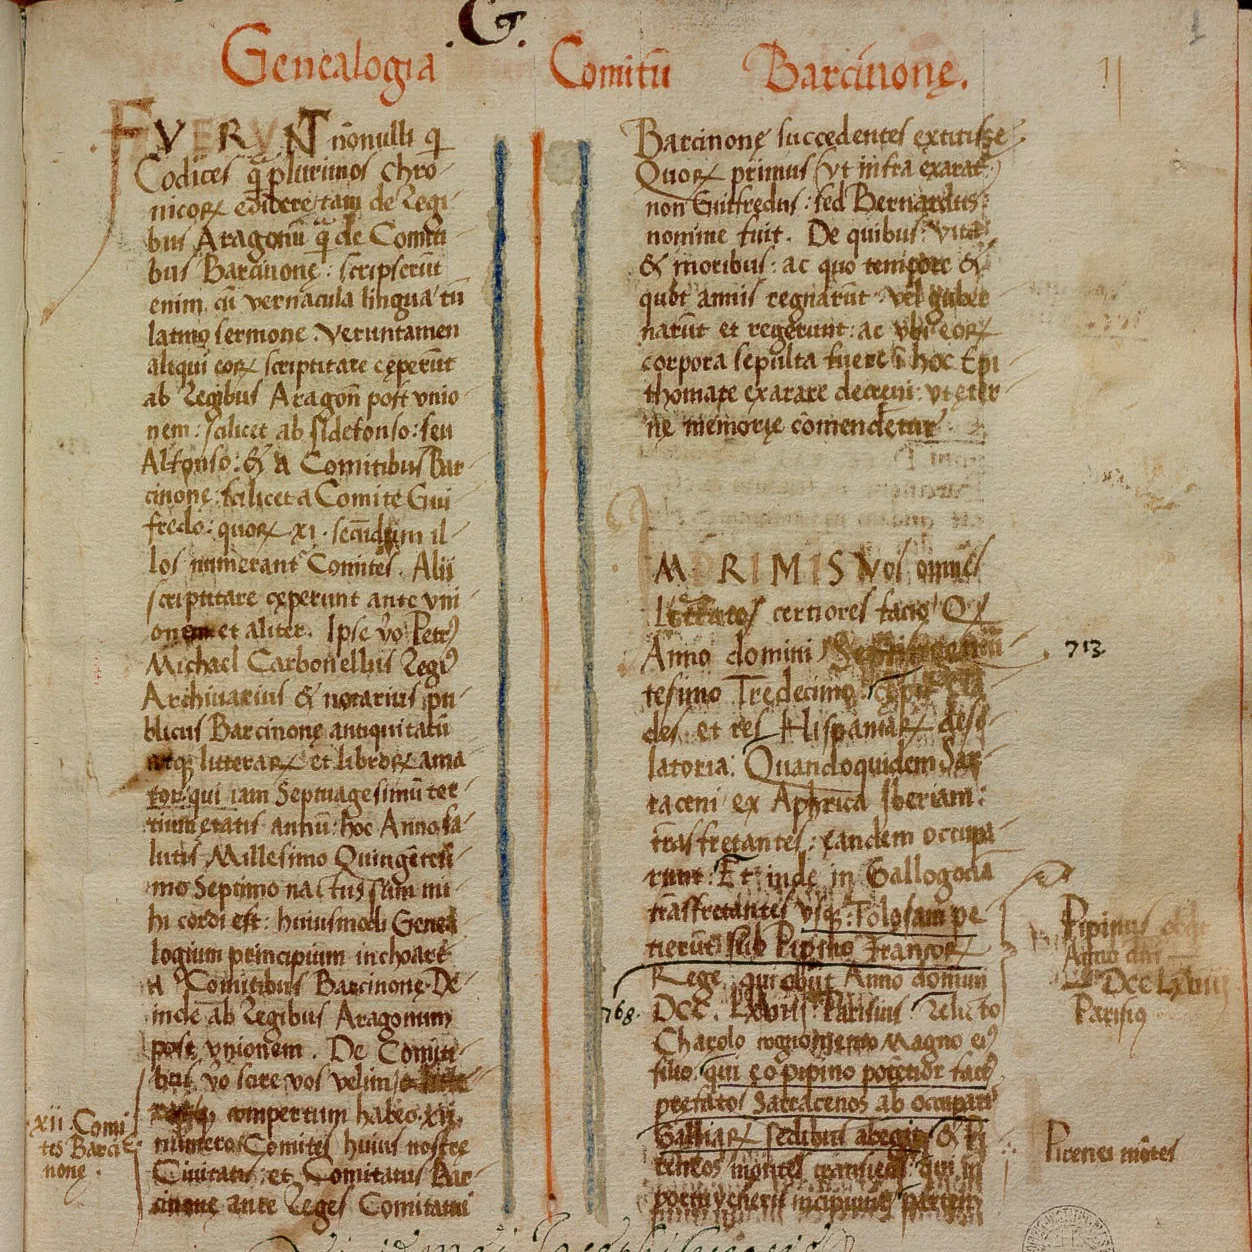 .G.
Genealogia Comitū Barcinonę.
FVERVNT nōnulli q
Codices q̄ plurimos Chro
nicoꝝ edidere tam de Regi
bus Aragonū q̄ de Comiti
bus Barcinonę: scripserūt
enim cū vernacula lingua tū
latino sermone. Veruntamen
aliqui eoꝝ scriptitare cęperūt
ab Regibus Aragonū post vnio
nem: scilicet ab Ildefonso: seu
Alfonso: & a Comitibus Bar
cinonę scilicet a Comite Gui
fredo: quoꝝ xi. secūdum il
los numerant Comites. Alii
scriptitare cęperunt ante vni
onem et aliter. Ipse vo Petrꝰ
Michael Carbonellus Regiꝰ
Archiuarius & notarius pu
blicus Barcinonę antiquitatū
atqꝫ litteraꝝ et libroꝝ ama
tor: qui iam Septuagesimū ter
tium etatis annū: hoc Anno sa
lutis Millesimo Quingētesi
mo Septimo nactus sum mi
hi cordi est: huiusmodi Genea
logium principium inchoare
a Comitibus Barcinonę. De
inde ab Regibus Aragonum
post vnionem. De Comiti
bus vo scire vos velim
compertum habeo. xii.
numero Comites huius nostrę
Ciuitatis: et Comitatus Bar
cinonę ante Reges Comitatui
xii. Comi
tes Barci
none.
Barcinonę succedentes extitisse
Quoꝝ primus (vt infra exarat̄)
non Guifredus: sed Bernardus
nomine fuit. De quibus: vita
& moribus: ac quo tempore &
quot annis regnarūt vel guber
narūt et regerunt: ac vbi eoꝝ
corpora sepulta fuere ī hoc Epi
thomate exarare decreui: vt eter
nę memorię cōmendetur
IMPRIMIS Vos omnes
Litteratos certiores facio Q
Anno domini Septingen
tesimo Tredecimo
des et res Hispaniaꝝ deso
latoria: Quandoquidem Sar
raceni ex Aphrica Iberiam:
trāsfretantes: eandem occupa
runt. Et inde in Gallogocia
trāsfretantes vsqꝫ Tolosam pe
tierūt sub Pipino Francoꝝ
Rege qui obiit Anno domini
DCC. LXVIII. Parisius. Relicto
Charolo cognomento Magno eiꝰ
filio: qui eo pipino potētior factꝰ
prefatos Sarracenos ab occupatis
Galliaꝝ sedibus abegit & Pi
reneos montes transiens: qui in
portu veneris incipiunt partem
713
768.
Pipinus obiit
Anno dni
DCC LXVIII
Parisius
Pirenei mōtes